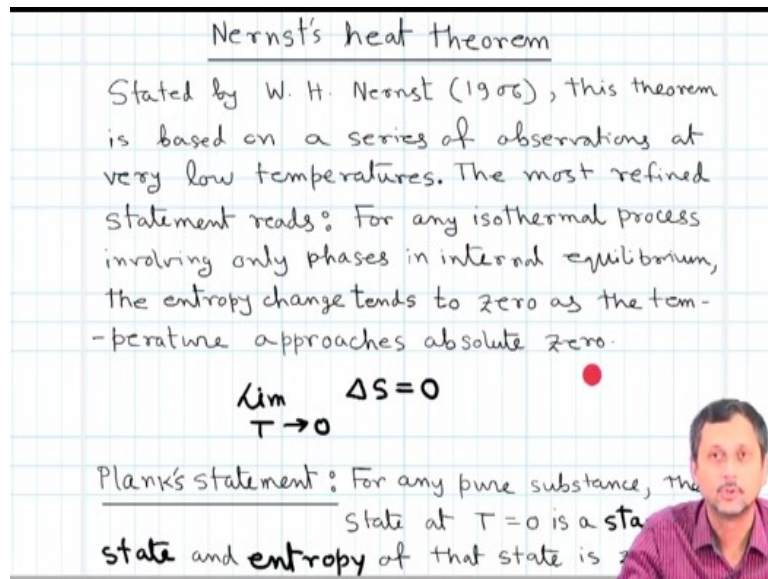 Nernst's heat theorem
Stated by W. H. Nernst (1906), this theorem
is based on a series of observations at
very low temperatures. The most refined
statement reads: For any isothermal process
involving only phases in internal equilibrium,
the entropy change tends to zero as the tem-
-perature approaches absolute zero.
Lim ΔS = 0
T → 0
Plank's statement: For any pure substance,
state at T = 0 is a
state and entropy of that state is